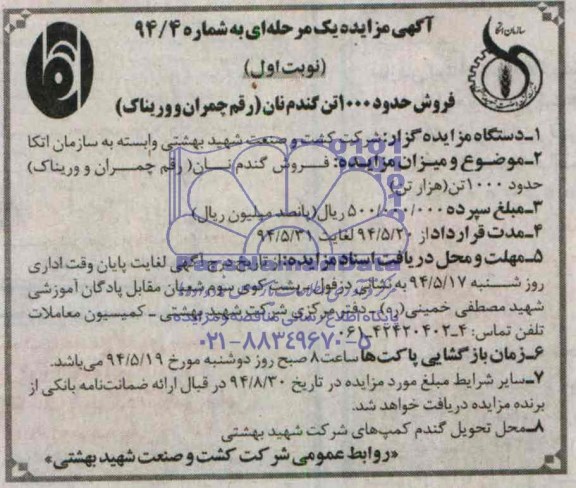 سازمان اتکا
آگهی مزایده یک مرحله‌ای به شماره ۹۴/۴
(نوبت اول)
فروش حدود ۱۰۰۰ تن گندم نان (رقم چمران و وریناک)
۱ـ دستگاه مزایده گزار: شرکت کشت و صنعت شهید بهشتی وابسته به سازمان اتکا
۲ـ موضوع و میزان مزایده: فروش گندم نان (رقم چمران و وریناک)
حدود ۱۰۰۰ تن (هزار تن)
۳ـ مبلغ سپرده ۵۰۰/۰۰۰/۰۰۰ ریال (پانصد میلیون ریال)
۴ـ مدت قرارداد از ۹۴/۵/۲۰ لغایت ۹۴/۵/۳۱
۵ـ مهلت و محل دریافت اسناد مزایده: از تاریخ درج آگهی لغایت پایان وقت اداری
روز شنبه ۹۴/۵/۱۷ به نشانی دزفول پشت کوی سوم شعبان مقابل پادگان آموزشی
شهید مصطفی خمینی (ره) ـ دفتر مرکزی شرکت شهید بهشتی ـ کمیسیون معاملات
تلفن تماس: ۴ـ۰۶۱ـ۴۲۴۲۰۴۰۲
۰۲۱-۸۸۳۴۹۶۷۰-۵
۶ـ زمان بازگشایی پاکت‌ها ساعت ۸ صبح روز دوشنبه مورخ ۹۴/۵/۱۹ می‌باشد.
۷ـ سایر شرایط مبلغ مورد مزایده در تاریخ ۹۴/۸/۳۰ در قبال ارائه ضمانت‌نامه بانکی از
برنده مزایده دریافت خواهد شد.
۸ـ محل تحویل گندم کمپ‌های شرکت شهید بهشتی
«روابط عمومی شرکت کشت و صنعت شهید بهشتی»